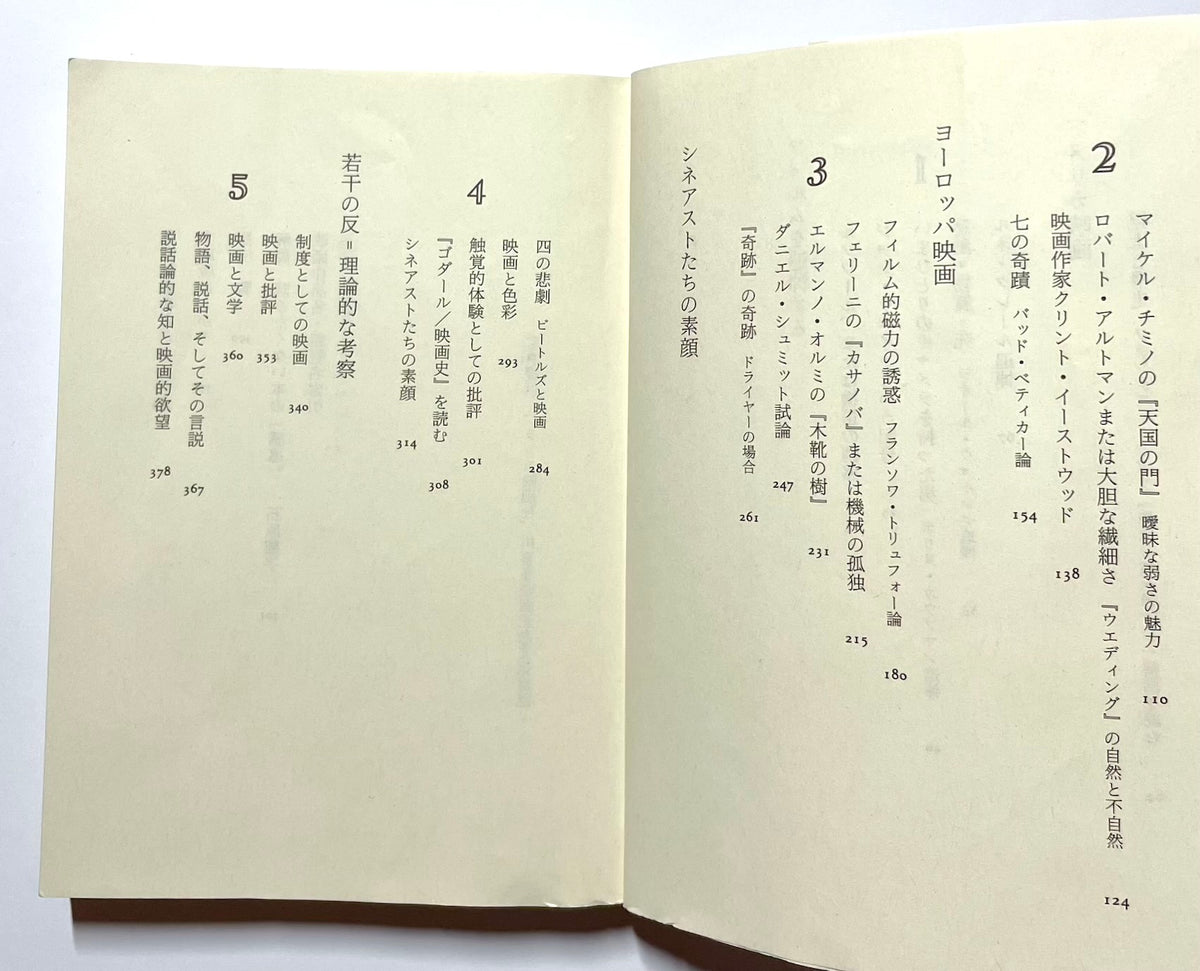 マイケル・チミノの『天国の門』 曖昧な弱さの魅力 110
2
ロバート・アルトマンまたは大胆な繊細さ 『ウエディング』の自然と不自然 124
映画作家クリント・イーストウッド 138
七の奇蹟 バッド・ベティカー論 154
ヨーロッパ映画
フィルム的磁力の誘惑 フランソワ・トリュフォー論 180
フェリーニの『カサノバ』または機械の孤独 215
3
エルマンノ・オルミの『木靴の樹』 231
ダニエル・シュミット試論 247
『奇跡』の奇跡 ドライヤーの場合 261
シネアストたちの素顔
四の悲劇 ビートルズと映画 284
映画と色彩 293
4
触覚的体験としての批評 301
『ゴダール／映画史』を読む 308
シネアストたちの素顔 314
若干の反＝理論的な考察
制度としての映画 340
映画と批評 353
5
映画と文学 360
物語、説話、そしてその言説 367
説話論的な知と映画的欲望 378